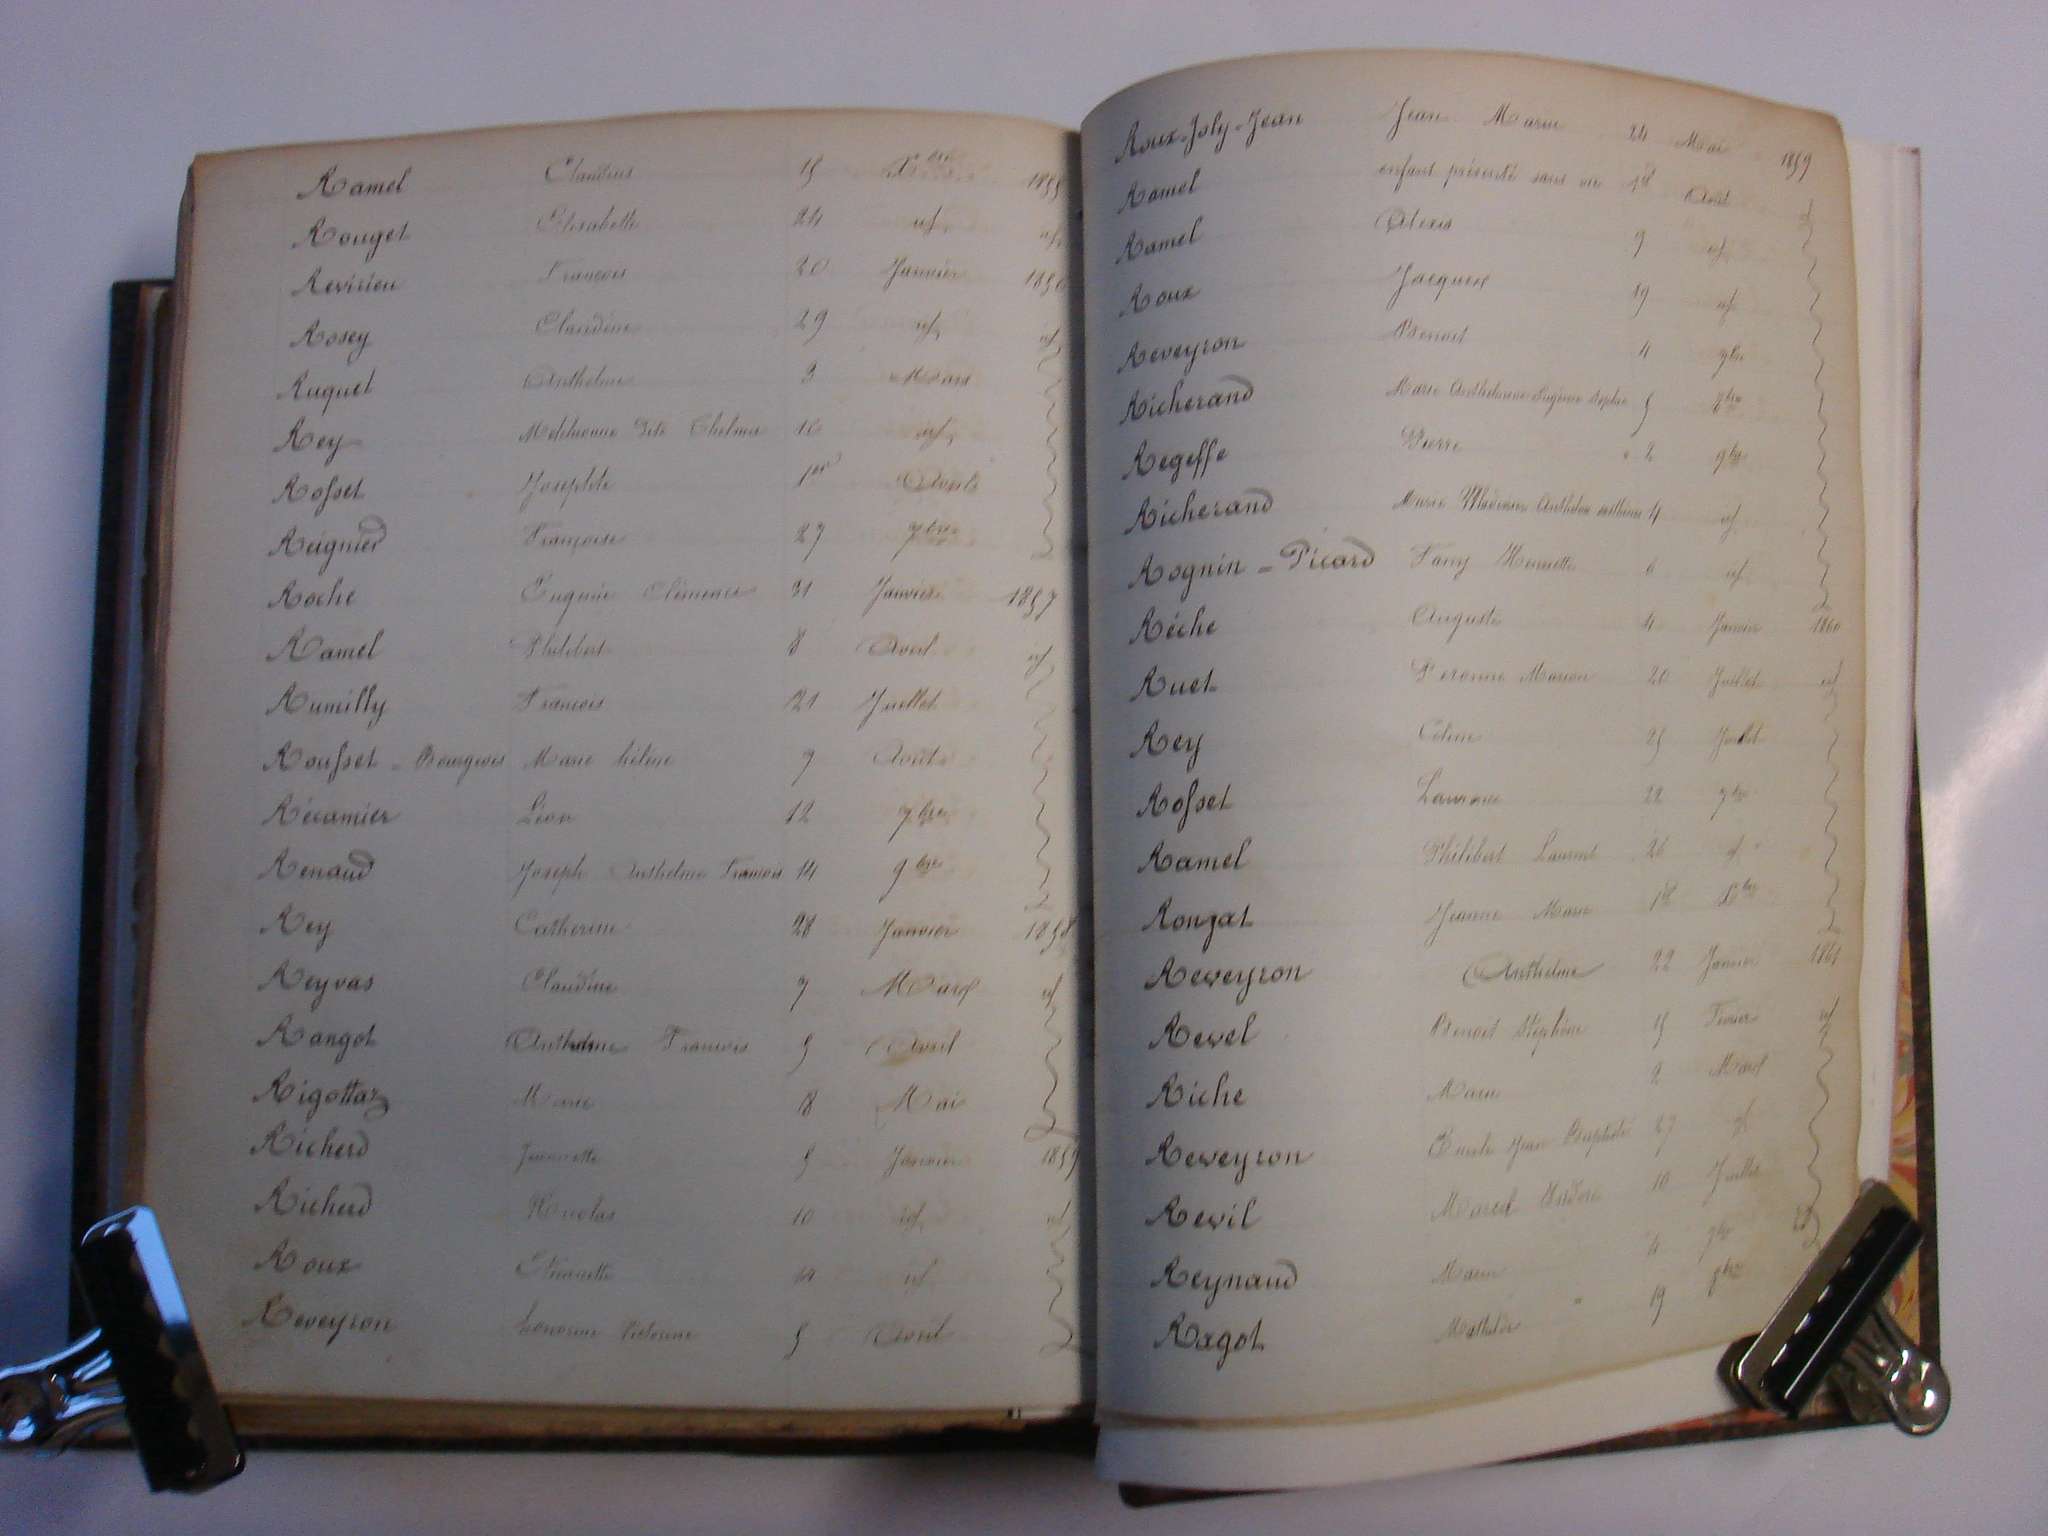 Ramel Claudius 15 Xbre 1855
Rouget Elisabeth 24 id id
Revirieu François 20 Janvier 1856
Rosey Claudine 29 id id
Ruquet Anthelme 3 Mars
Rey dite Thelma 16 id
Rosset Josephte 1er Avril
Reignier Françoise 27 7bre
Roche Eugénie Clémence 31 Janvier 1857
Ramel Philibert 8 Avril id
Rumilly François 21 Juillet
Rousset - Bourgeois Marie hélène 9 Août
Récamier Léon 12 7bre
Renaud Joseph Anthelme François 14 9bre
Rey Catherine 28 Janvier 1858
Reyvas Claudine 7 Mars id
Rangot Anthelme François 5 Avril
Rigottaz Marie 18 Mai
Richerd Jeannette 5 Janvier 1859
Richerd Nicolas 10 id id
Roux Etiennette 14 id
Reveyron honorine Victorine 5 Avril
Roux-Joly-Jean Jean Marie 24 Mai 1859
Ramel enfant présenté sans vie 18 Août id
Ramel Alexis 9 id
Roux Jacques 19 id
Reveyron Benoit 4
Richerand Marie Anthelmine Eugénie Sophie 5
Regeffe Pierre 2 9bre
Richerand Marie 4 id
Rognin - Picard Fany Henriette 6 id
Réche Auguste 4 Janvier 1860
Ruet Peronne Marion 20 Juillet id
Rey Céline 25 Juillet
Rosset Laurence 22 9bre
Ramel Philibert Laurent 26 id
Rongat Jeanne Marie 18 Xbre
Reveyron Anthelme 22 Janvier 1861
Revel Benoit Stéphane 15 Février id
Riche Marie 2 Mars
Reveyron Emile Jean Baptiste 27 id
Revil Marcel Isidore 10 Juillet
Reynaud Marie 4 7bre
Ragot Mathilde 19 8bre